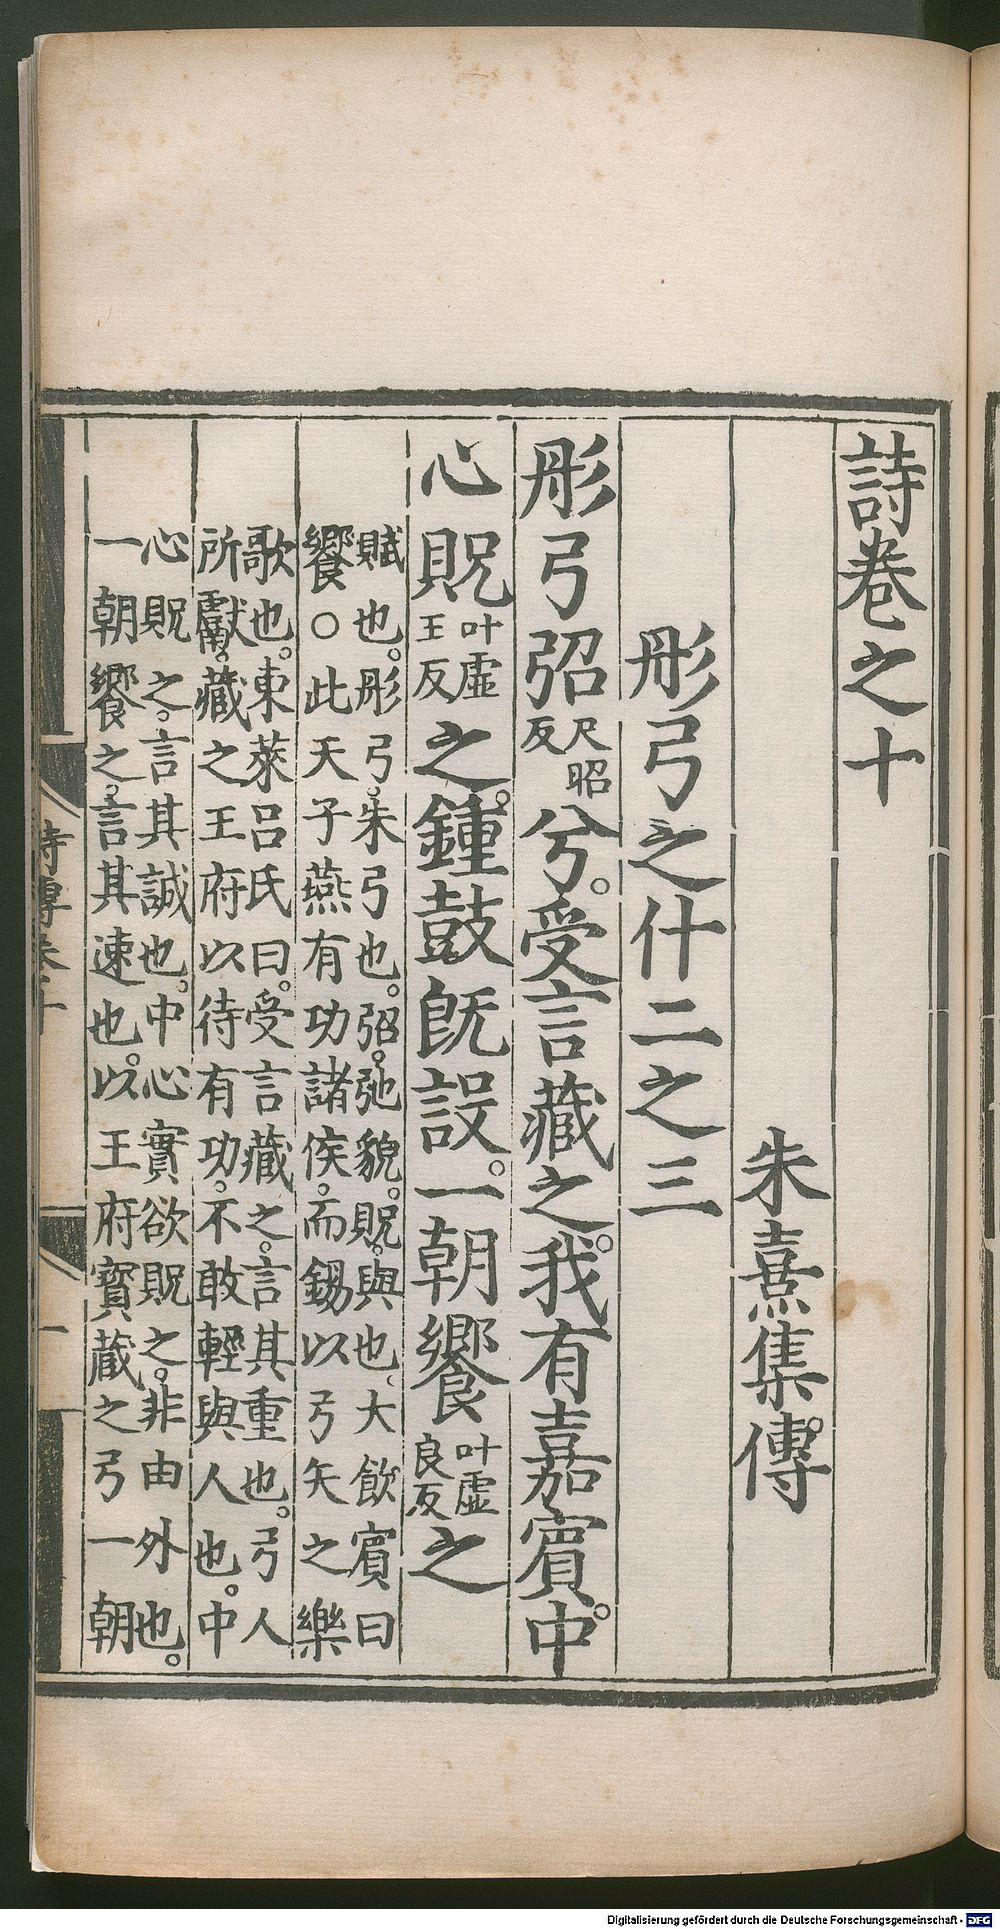 詩卷之十
朱熹集傳
彤弓之什二之三
彤弓弨尺昭反兮。受言藏之。我有嘉賓。中
心貺叶虛王反之。鍾鼓既設。一朝饗叶虛良反之
賦也。彤弓。朱弓也。弨。弛貌。貺。與也、大飲賓曰
饗○此天子燕有功諸侯。而錫以弓矢之樂
歌也。東萊呂氏曰。受言藏之。言其重也。弓人
所獻。藏之王府以待有功。不敢輕與人也。中
心貺之。言其誠也。中心實欲貺之。非由外也。
一朝饗之。言其速也。以王府寶藏之弓一朝
詩傳卷十
一
Digitalisierung gefördert durch die Deutsche Forschungsgemeinschaft - DFG